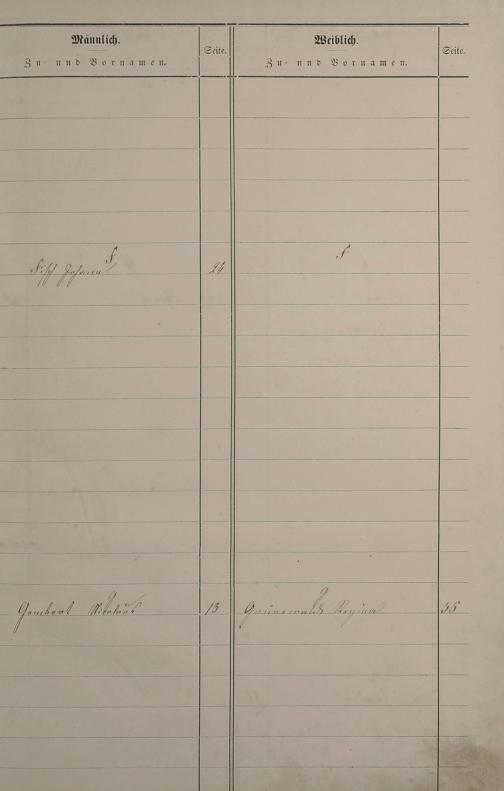 Männlich.
Zu- und Vornamen.
Seite.
Weiblich.
Zu- und Vornamen.
Seite.
F
F
Fisch Johann
24
G
G
Gombert Nikolaus
13
Grünewald Regina
35